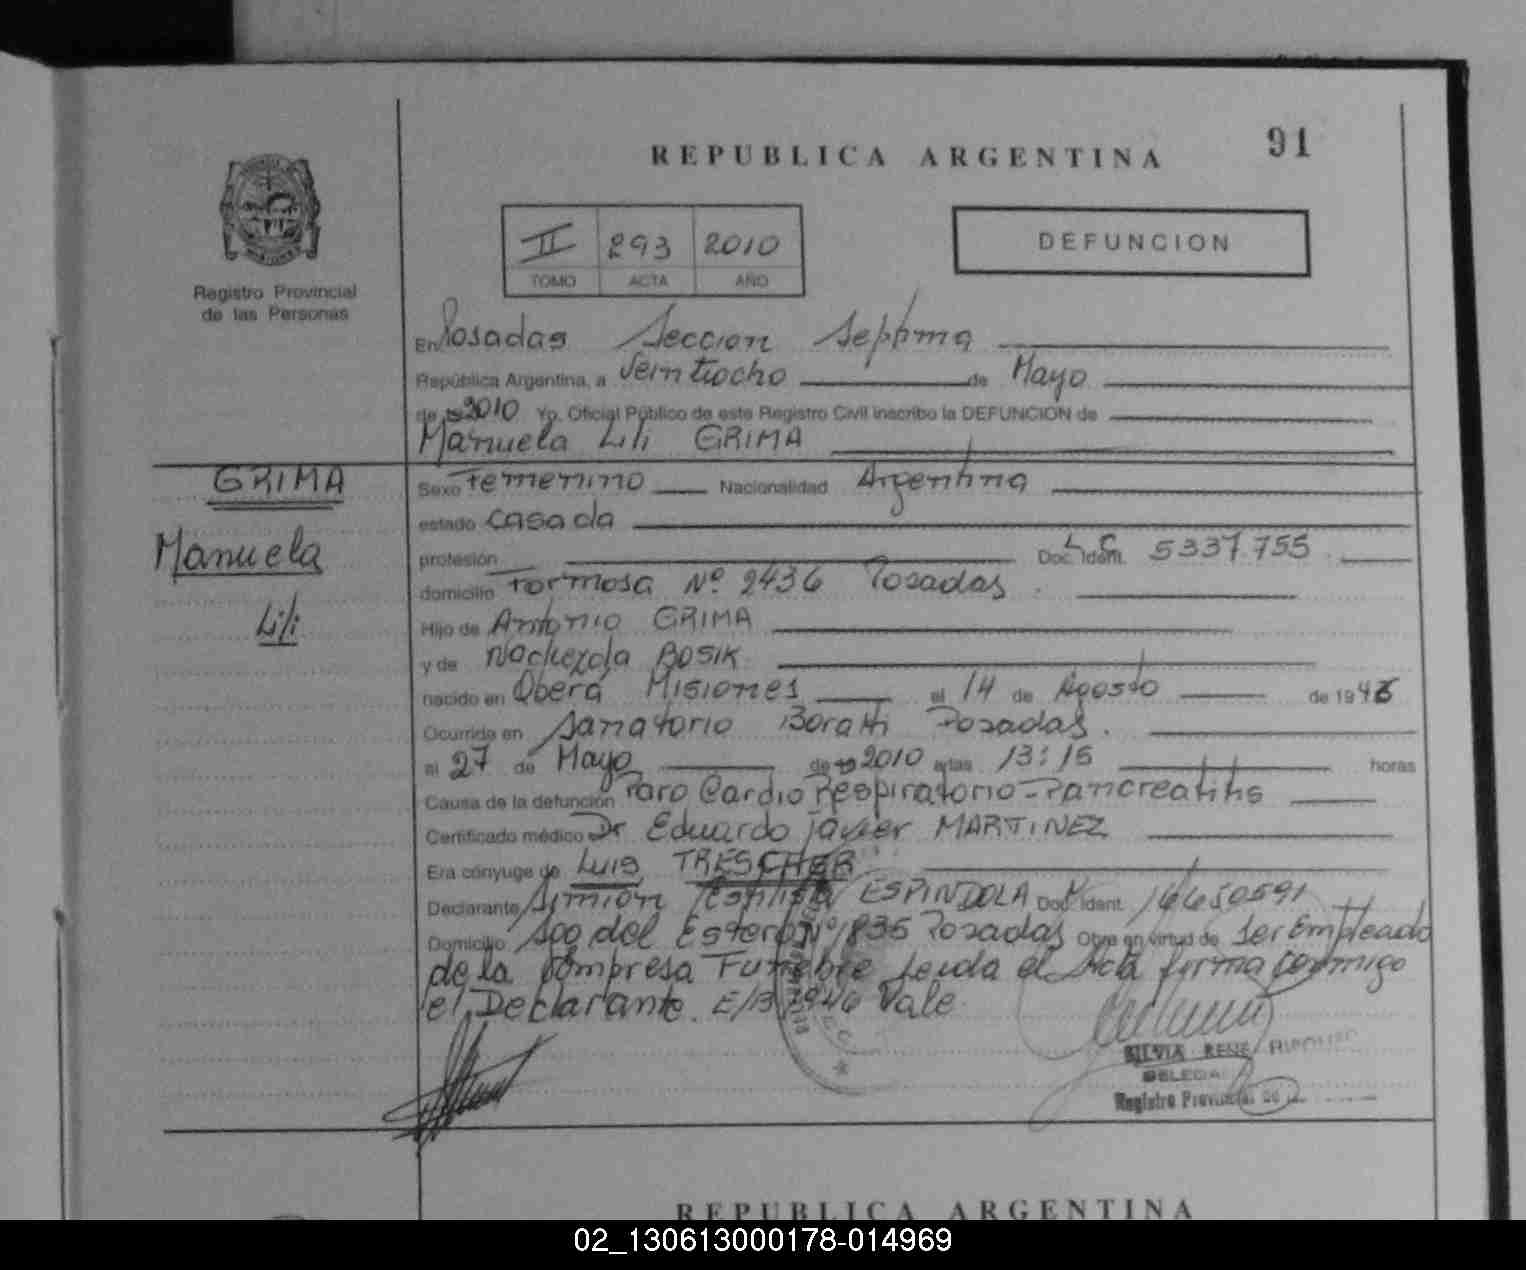 91
REPUBLICA ARGENTINA
II 293 2010
TOMO ACTA AÑO
DEFUNCION
Registro Provincial
de las Personas
En Posadas Seccion Septima
República Argentina, a Veintiocho de Mayo
de 19 2010 Yo, Oficial Público de este Registro Civil inscribo la DEFUNCION de
Manuela Lili GRIMA
GRIMA
Manuela
Lili
Sexo Femenino Nacionalidad Argentina
estado casada
profesión Doc. Ident. L C 5337.755
domicilio Formosa Nº 2436 Posadas
Hijo de Antonio GRIMA
y de BOSIK
nacido en Oberá Misiones el 14 de Agosto de 1946
Ocurrida en Sanatorio Boratti Posadas.
el 27 de Mayo de 19 2010 a las 13:15 horas
Causa de la defunción Paro Cardio Respiratorio-Pancreatitis
Certificado médico Dr Eduardo Javier MARTINEZ
Era cónyuge de Luis TRESCHER
Declarante Simión ESPINDOLA Doc. Ident. 16650591
Domicilio Sgo del Estero Nº 1835 Posadas Obra en virtud de ser Empleado
de la Empresa Funebre Leida el Acta firma conmigo
el Declarante. E/B 1946 Vale
SILVIA RENE
DELEGA
Registro Provincial de
REPUBLICA ARGENTINA
02_130613000178-014969